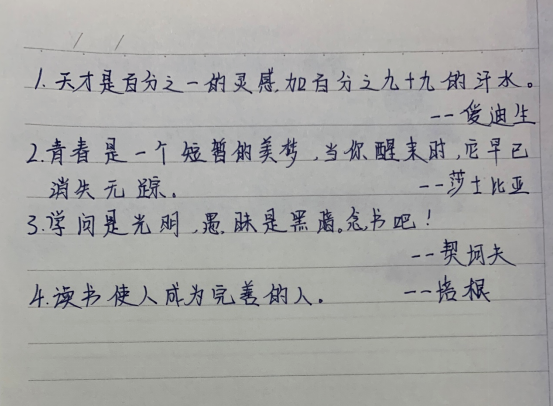 1.天才是百分之一的灵感,加百分之九十九的汗水。
--俊迪生
2.青春是一个短暂的美梦,当你醒来时,它早已
消失无踪.
--莎士比亚
3.学问是光明,愚昧是黑暗。念书吧!
--契坷夫
4.读书使人成为完善的人.
--培根